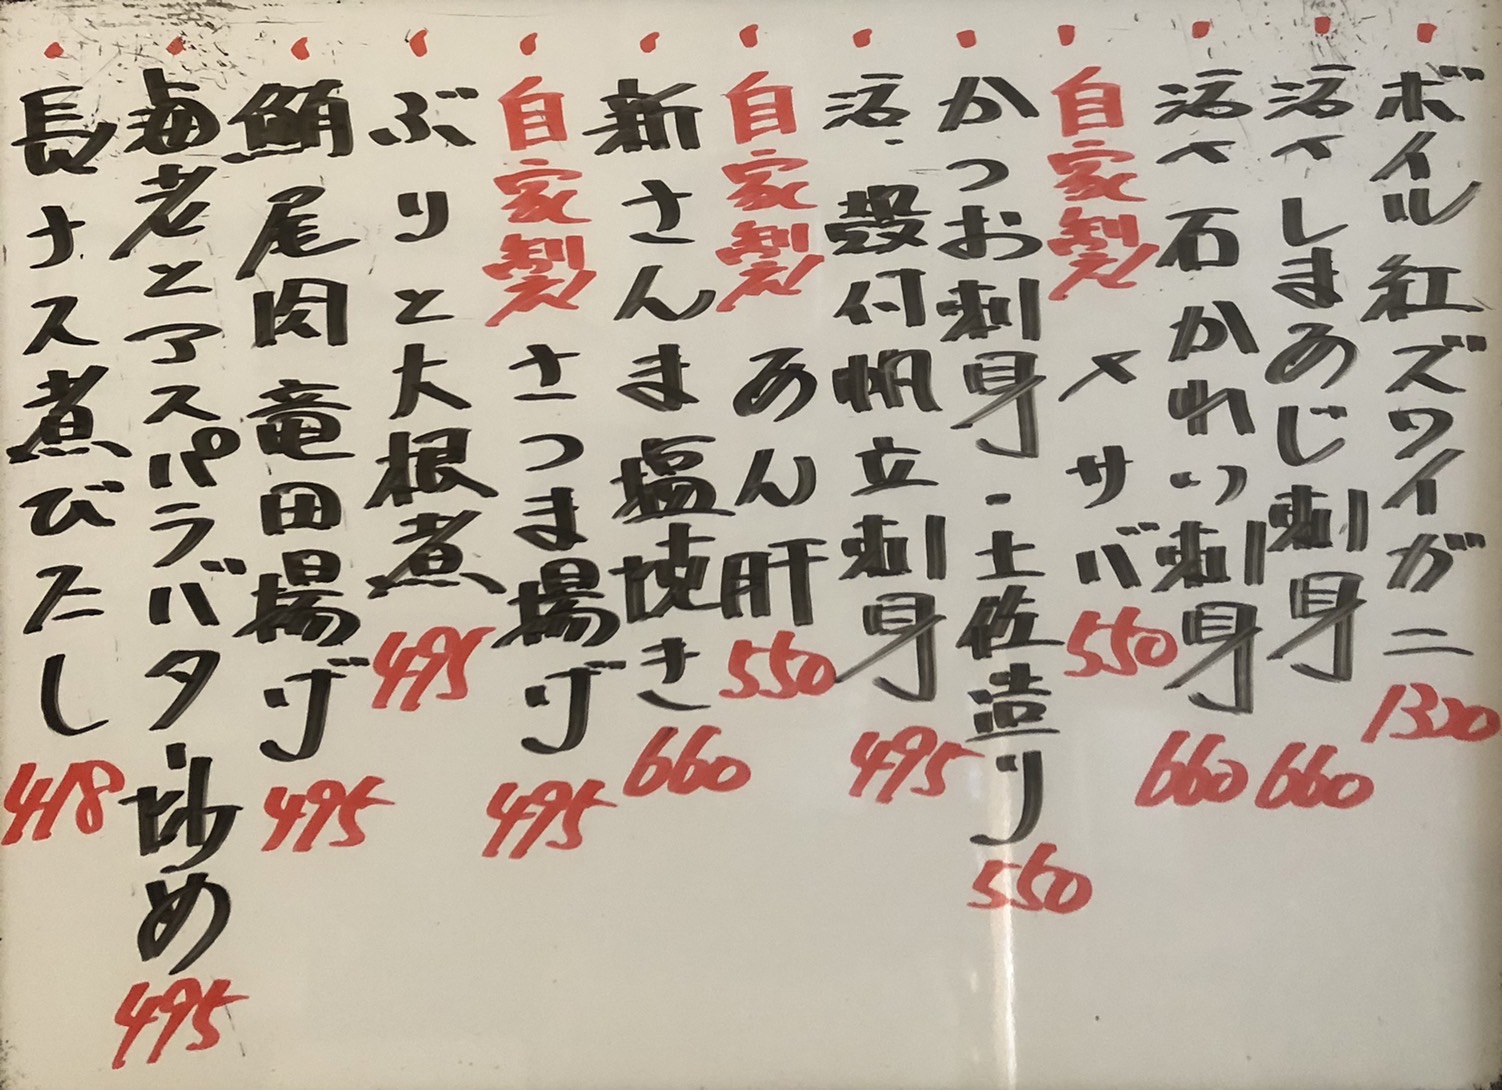 ボイル紅ズワイガニ 1320
活〆しまあじ刺身 660
活〆石かれい刺身 660
自家製 〆サバ 550
かつお刺身・土佐造り 550
活・殻付帆立刺身 495
自家製 あん肝 550
新さんま塩焼き 660
自家製 さつま揚げ 495
ぶりと大根煮 495
鮪尾肉竜田揚げ 495
海老とアスパラバター炒め 495
長ナス煮びたし 418